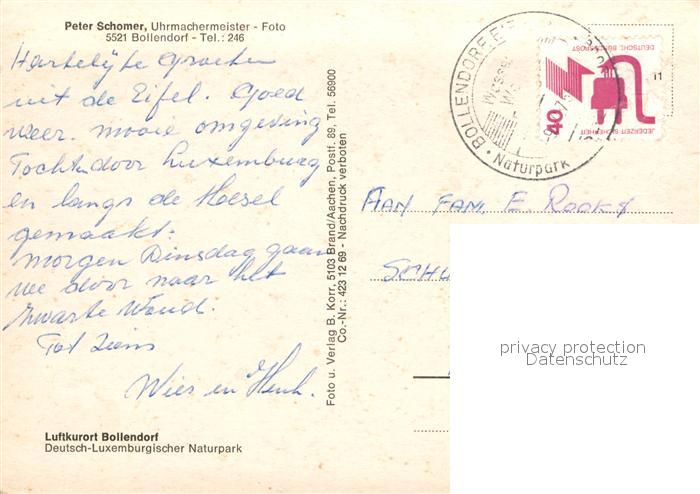 Peter Schomer, Uhrmachermeister - Foto
5521 Bollendorf - Tel.: 246
Hartelijke Groeten
uit de Eifel. Goed
weer. mooie omgeving
Tochten door Luxemburg
en langs de Moesel
gemaakt.
morgen Dinsdag gaan
we door naar het
Zwarte Woud.
Tot Ziens
Wies en Henk.
Luftkurort Bollendorf
Deutsch-Luxemburgischer Naturpark
Foto u. Verlag B. Korr, 5103 Brand/Aachen, Postf. 89, Tel. 56900
Co.-Nr.: 423 12 69 - Nachdruck verboten
BOLLENDORF
Naturpark
DEUTSCHE BUNDESPOST
40
JEDERZEIT SICHERHEIT
AAN FAM. E.
SCHU
privacy protection
Datenschutz